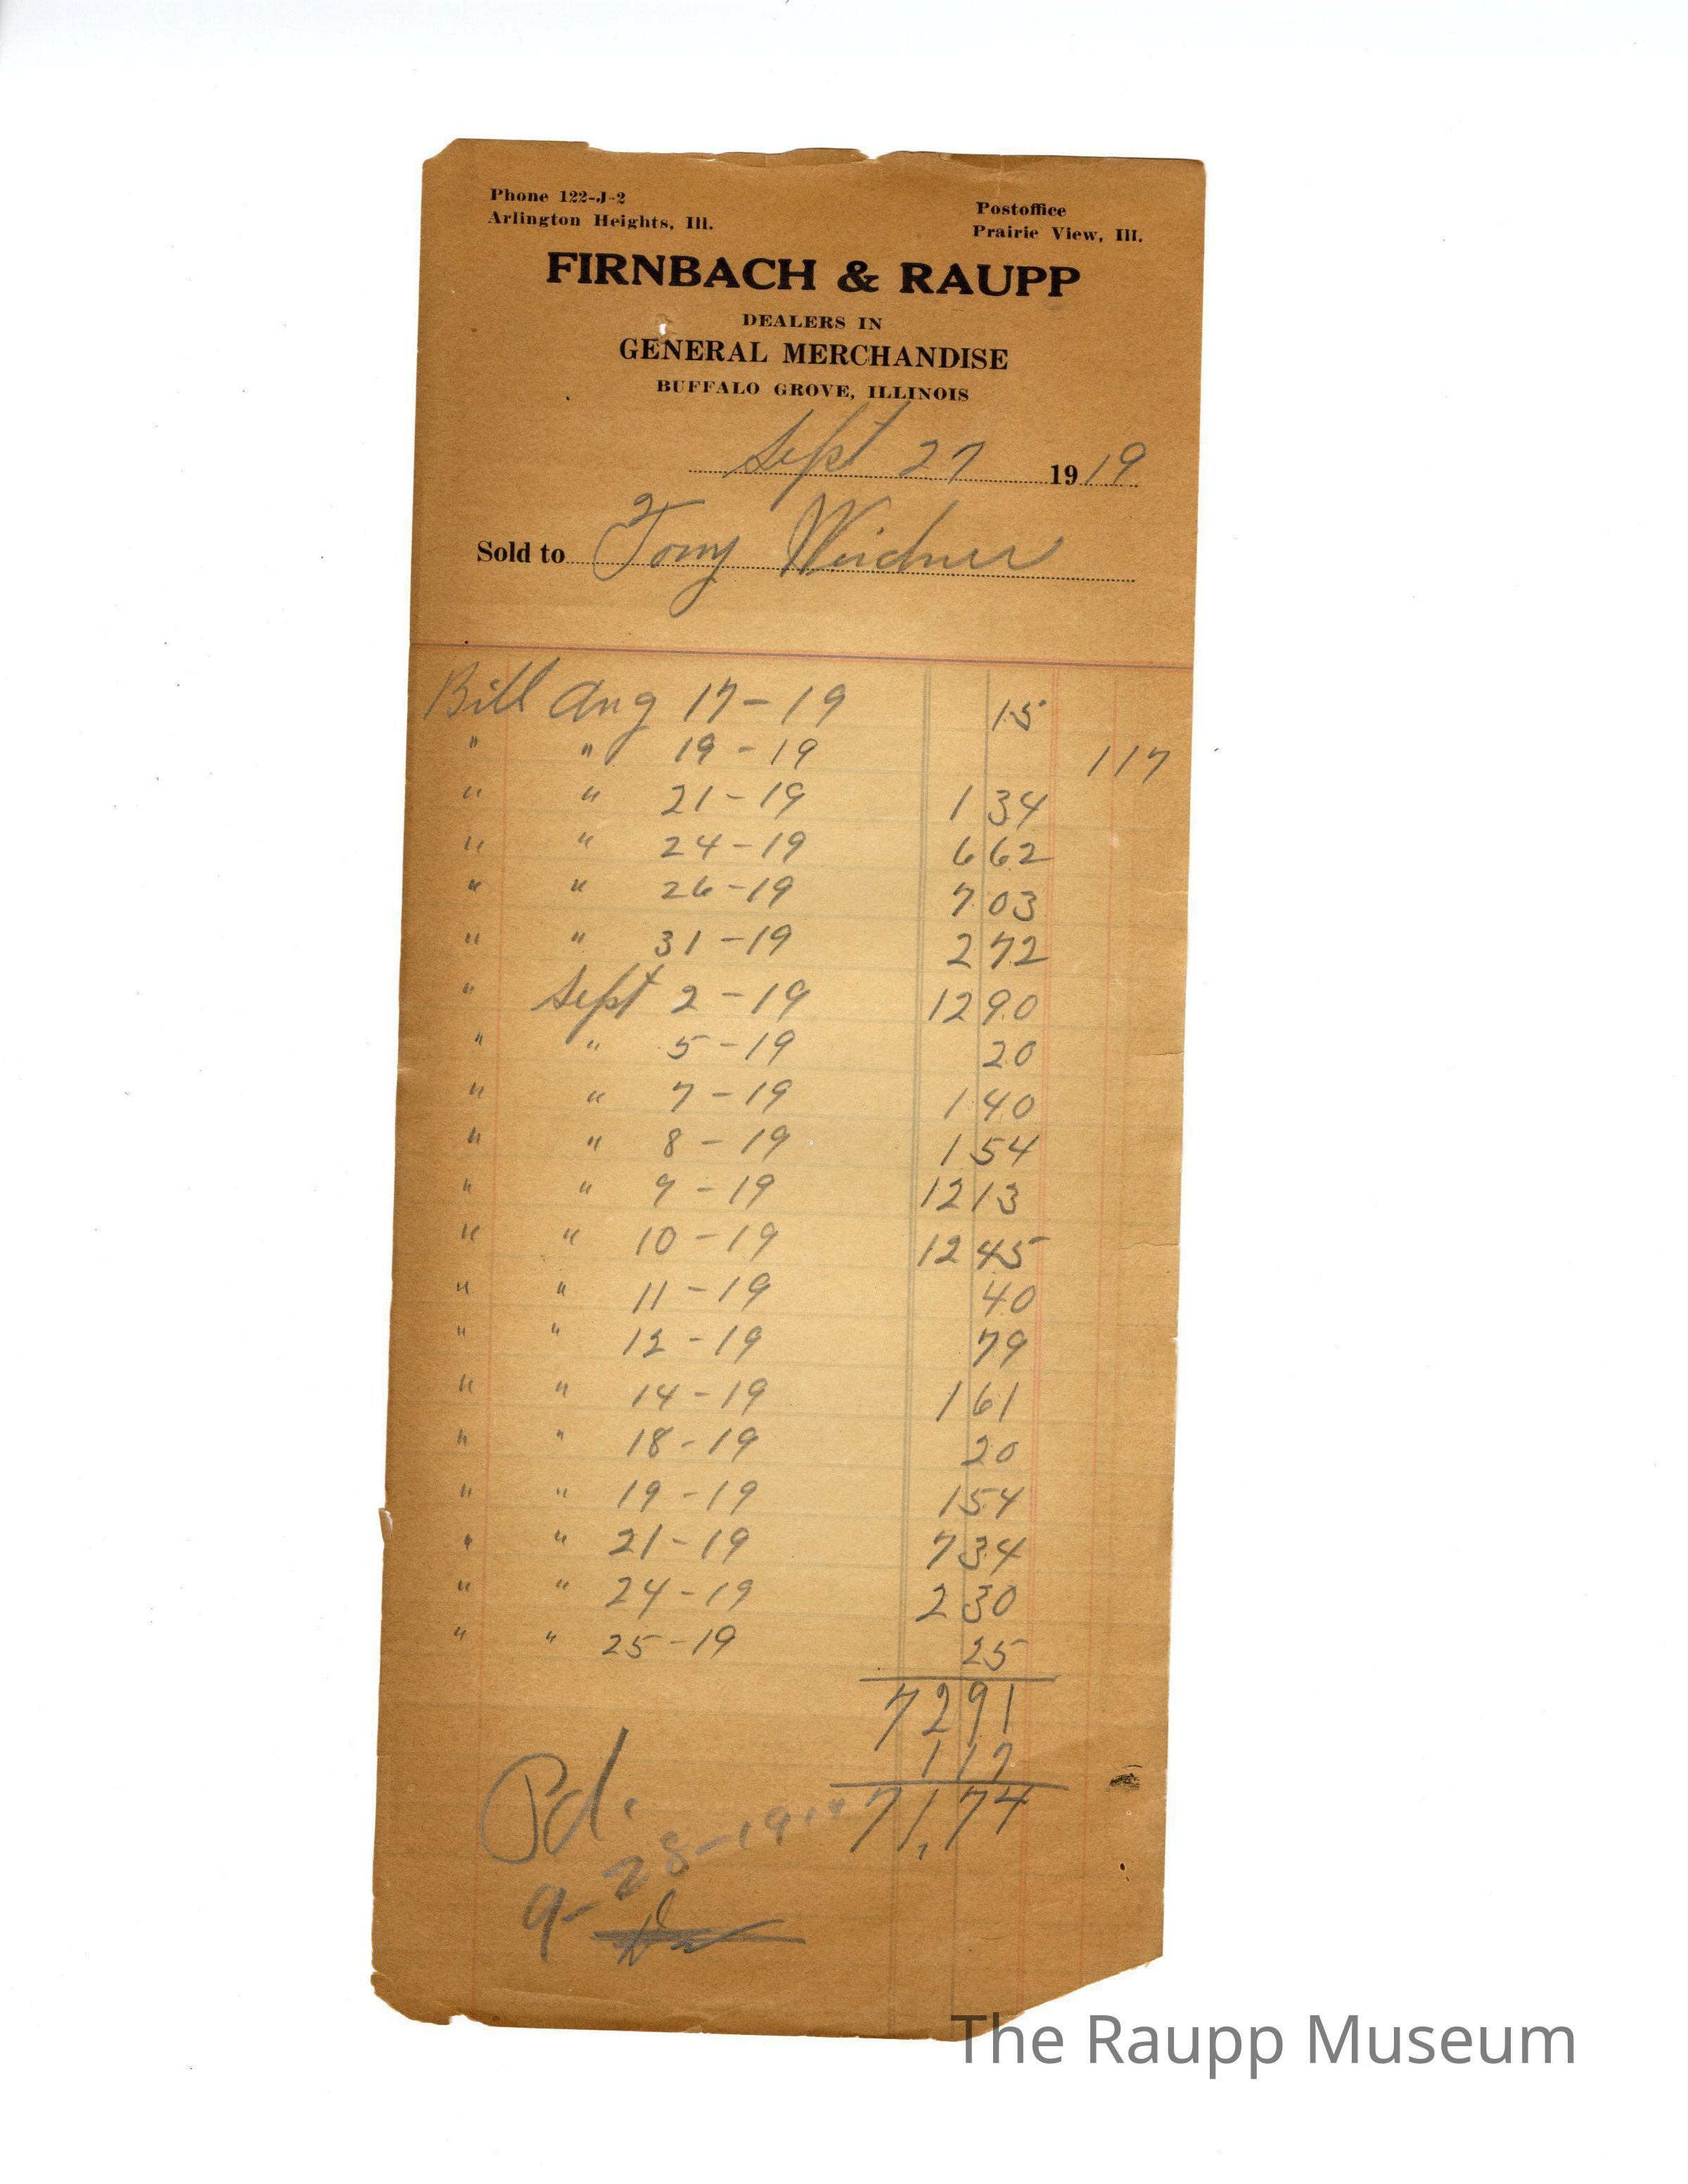 Phone 122-J-2
Arlington Heights, Ill.
Postoffice
Prairie View, Ill.
FIRNBACH & RAUPP
DEALERS IN
GENERAL MERCHANDISE
BUFFALO GROVE, ILLINOIS
Sept 27 1919
Sold to Tony Weidner
Bill Aug 17-19 15
" " 19-19 117
" " 21-19 1 34
" " 24-19 6 62
" " 26-19 7 03
" " 31-19 2 72
" Sept 2-19 12 90
" " 5-19 20
" " 7-19 1 40
" " 8-19 1 54
" " 9-19 12 13
" " 10-19 12 45
" " 11-19 40
" " 12-19 79
" " 14-19 1 61
" " 18-19 20
" " 19-19 1 54
" " 21-19 7 34
" " 24-19 2 30
" " 25-19 25
72 91
1 17
71,74
Pd.
9-28-19
The Raupp Museum